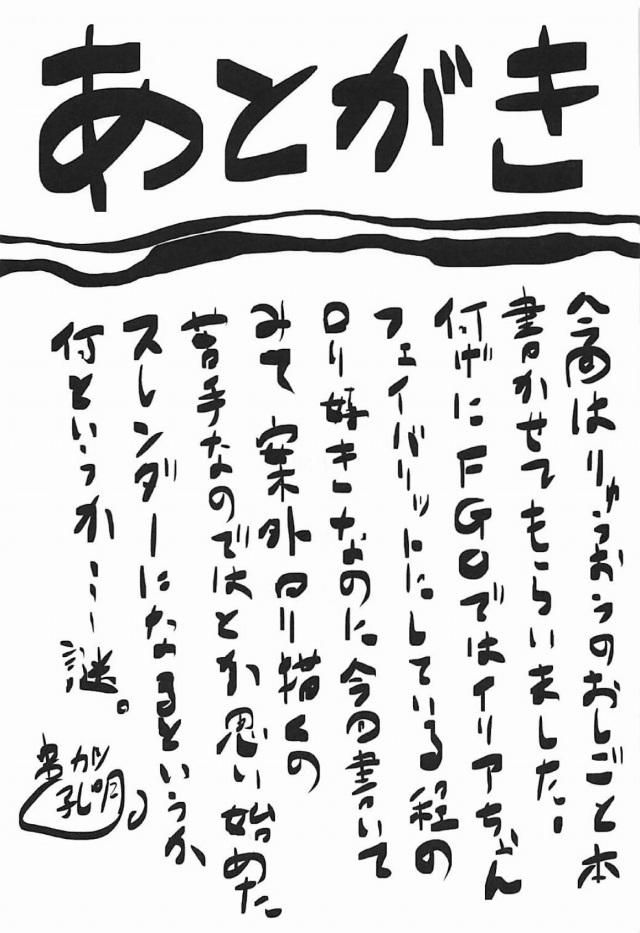 あとがき
今回はりゅうおうのおしごと本
書かせてもらいました!
何げにFGOではイリアちゃん
フェイバリットにしている程の
ロリ好きなのに今回書いて
みて案外ロリ描くの
苦手なのではとか思い始めた
スレンダーになるというか
何というか…謎。